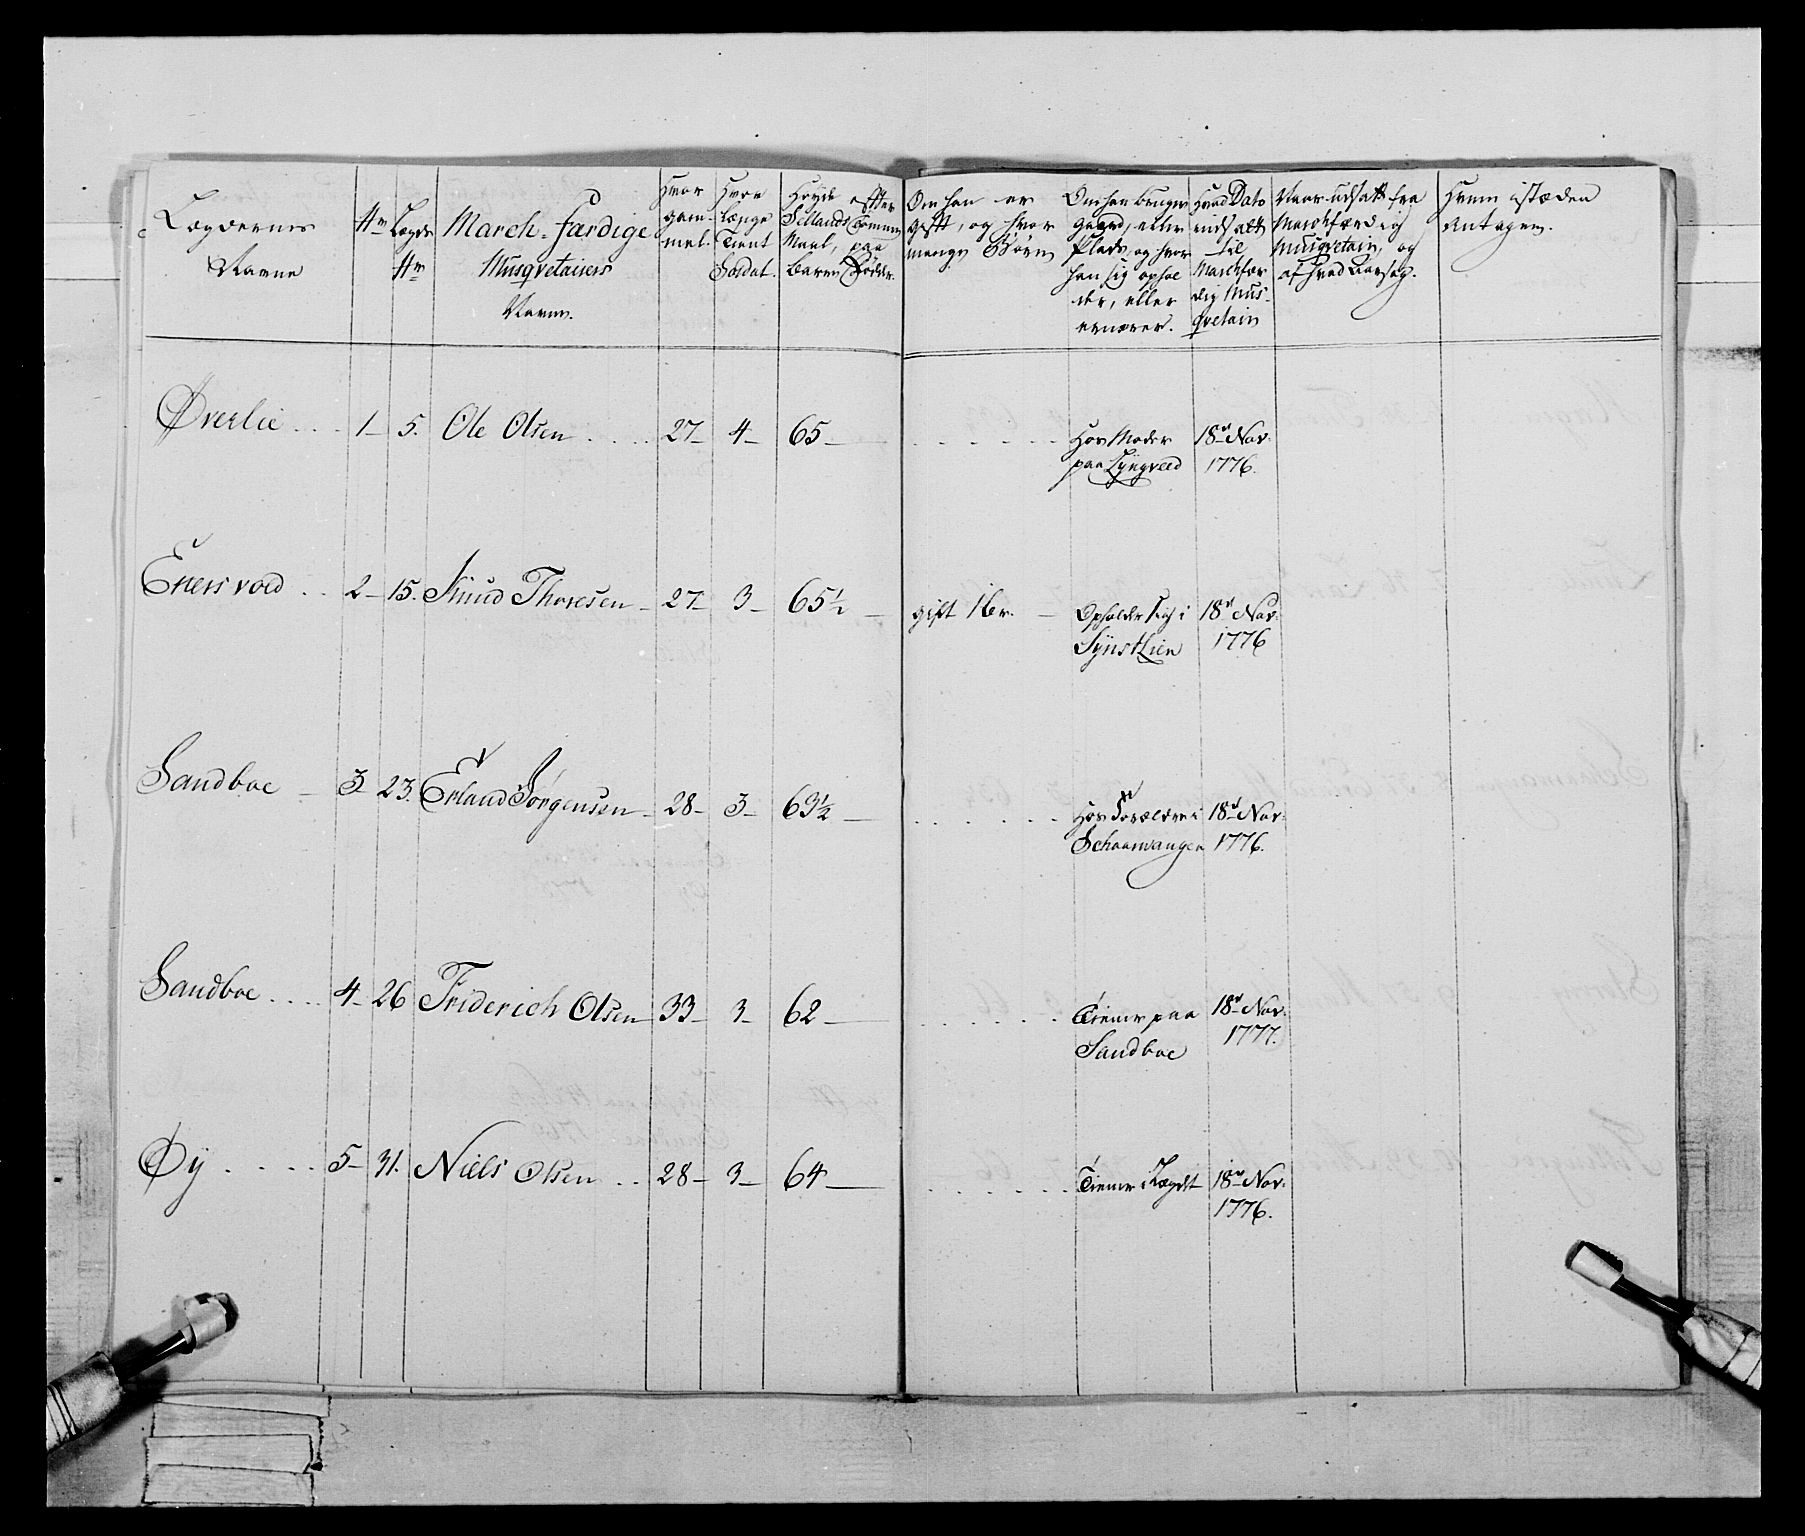 Lægdernes Navne
Nr
Lægds Nr
March-færdige Musqvetairers Navne.
Hvor gammel.
Hvor længe Tient Soldat.
Høyde efter Sellands Tomme Maal, paa barre Fødder.
Om han er gift, og hvor mange Børn
Om han bruger Gaard, eller Plads, og hvor han sig opholder, eller ernærer.
Hvad Dato indsatt til Marchfærdig Musqvetair
Naar udsatt fra Marchfærdig Musqvetair, og af hvad Aarsag.
Hvem istæden antagen.
Øverlie .... 1 5. Ole Olsen .... 27 4 65 ...... Hos Moder 18de Nov:
paa Lyngved 1776.
Enersvold .. 2 15. Knud Thoresen 27 3 65½ gift 1 br. Opholder sig i 18de Nov:
Synst Lien 1776
Sandboe 3 23. Erland Jørgensen 28 3 63½ ...... Hos Forældre i 18de Nov:
Schaarvangen 1776.
Sandboe .... 4 26 Friderich Olsen 33 3 62 ...... Tiener paa 18de Nov:
Sandboe 1777.
Øÿ .... 5 31. Niels Olsen .. 28 3 64 ...... Tiener i Lægdt 18de Nov:
1776.